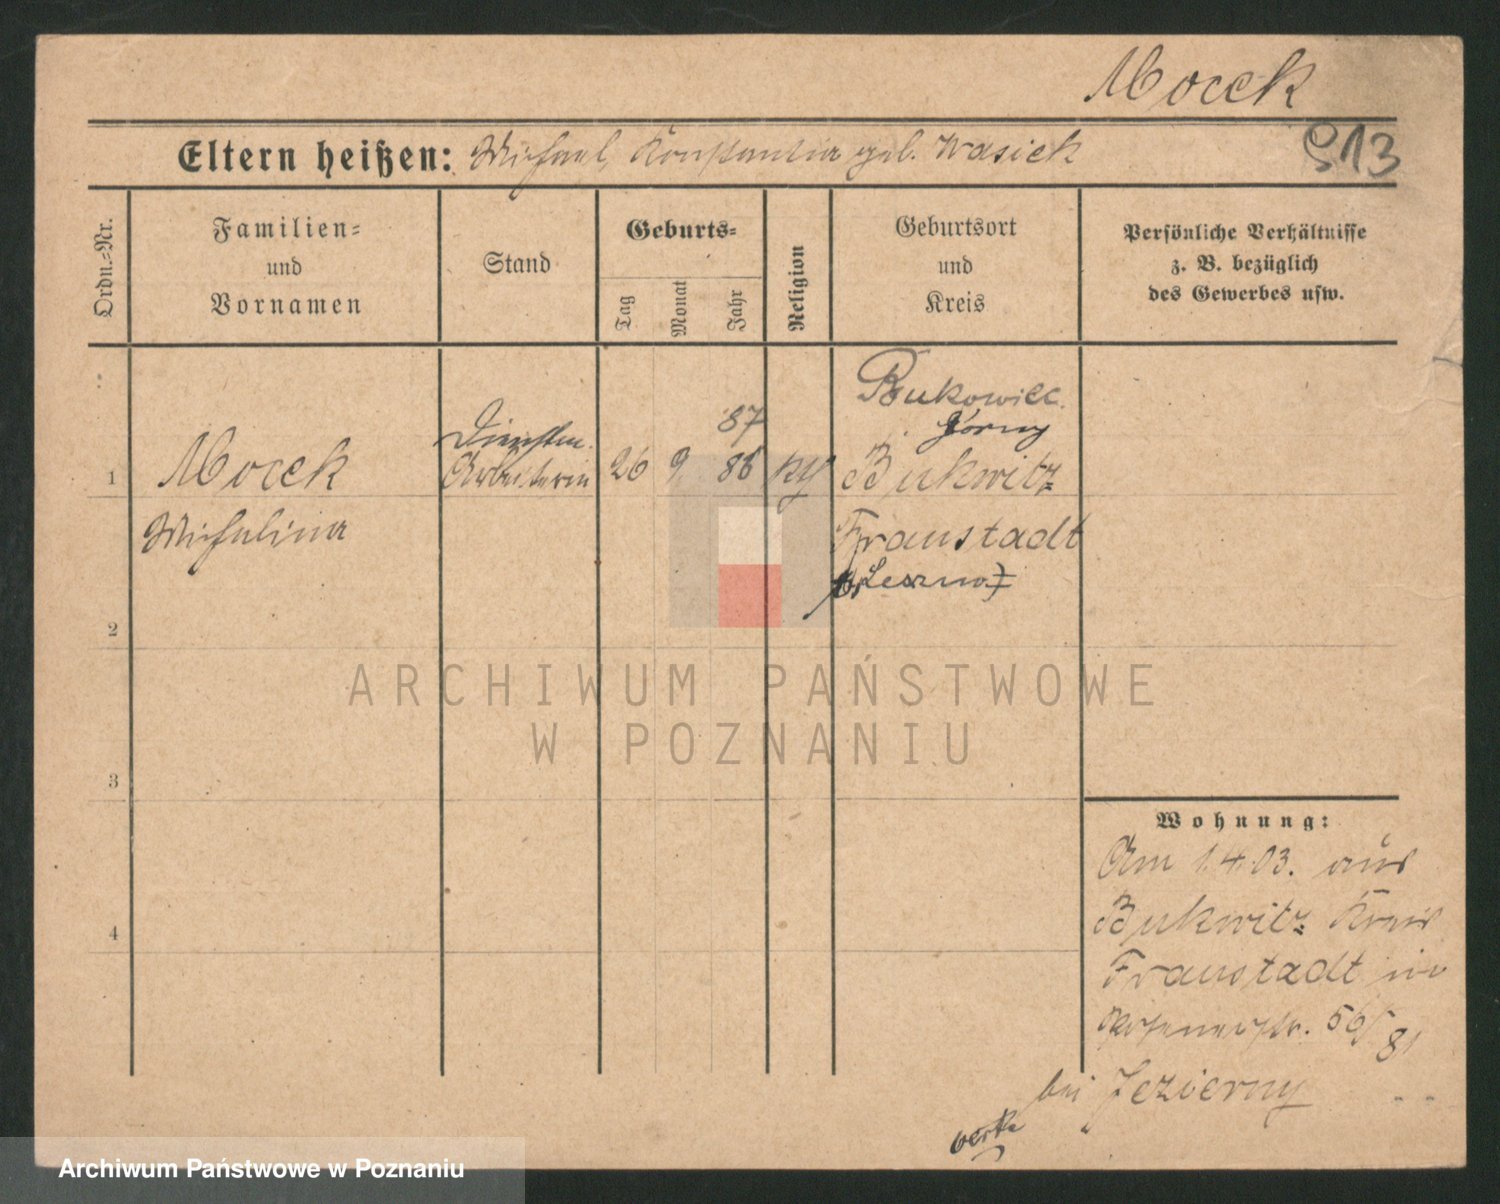 Mocek
Eltern heißen: Michael, Konstantia geb. Wasiek
913
Ordn.=Nr.
Familien=
und
Vornamen
Stand
Geburts=
Tag
Monat
Jahr
Religion
Geburtsort
und
Kreis
Persönliche Verhältnisse
z. B. bezüglich
des Gewerbes usw.
Bukowiec
górny
87
1
Mocek
Arbeiterin
26
9
86
Bukwitz
Michalina
Fraustadt
Leszno
2
ARCHIWUM PAŃSTWOWE
W POZNANIU
3
Wohnung:
Am 1.4.03. aus
4
Bukwitz Kreis
Fraustadt in
56/
81
bei Jezierny
Archiwum Państwowe w Poznaniu